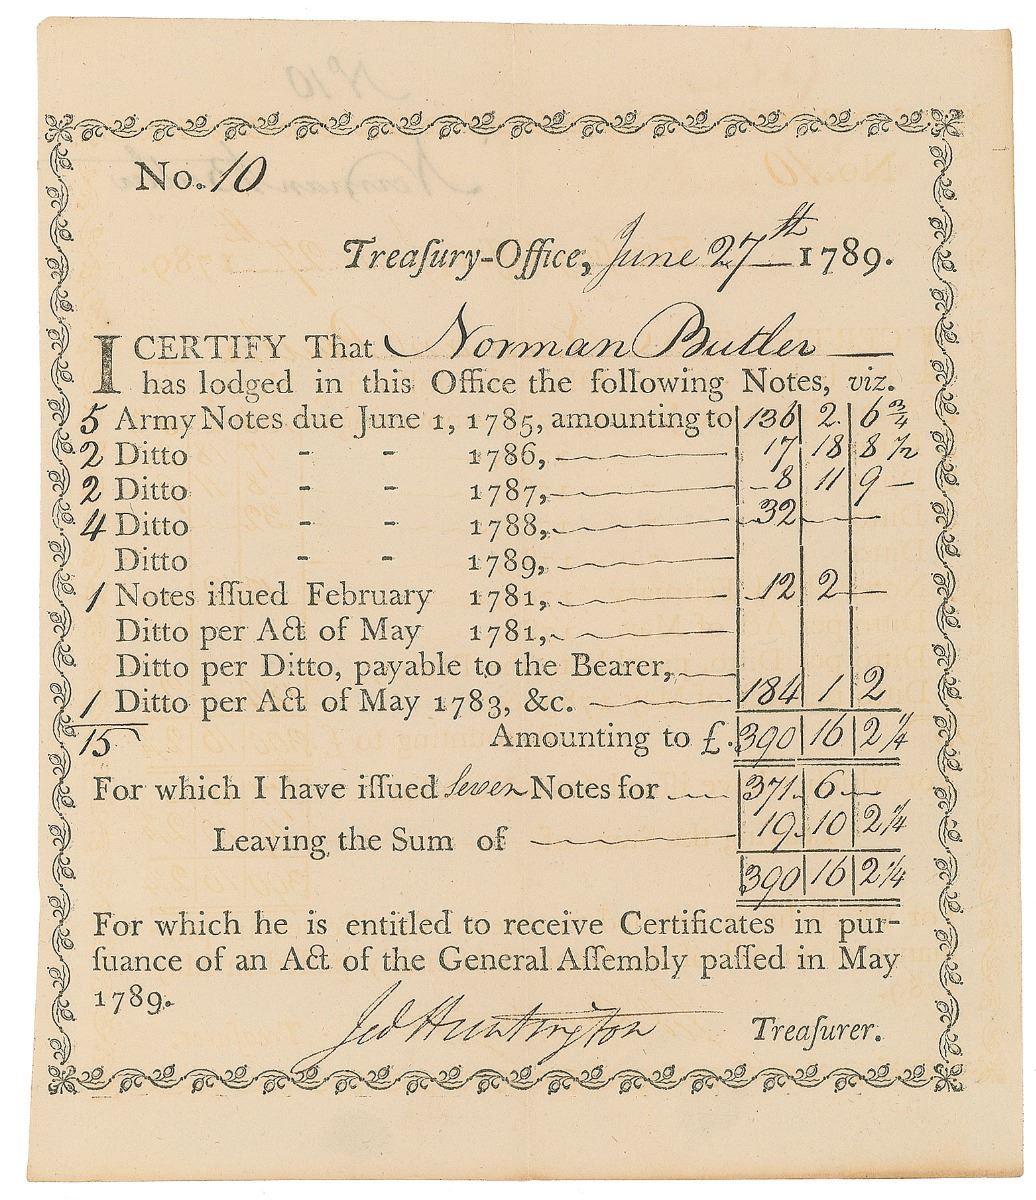 No. 10
Treaſury-Office, June 27th 1789.
I CERTIFY That Norman Butler
has lodged in this Office the following Notes, viz.
5 Army Notes due June 1, 1785, amounting to 136 2 6 3/4
2 Ditto - - 1786, 17 18 8 1/2
2 Ditto - - 1787, 8 11 9 -
4 Ditto - - 1788, 32
Ditto - - 1789,
1 Notes iſſued February 1781, 12 2 -
Ditto per Act of May 1781,
Ditto per Ditto, payable to the Bearer,
1 Ditto per Act of May 1783, &c. 184 1 2
15 Amounting to £. 390 16 2 1/4
For which I have iſſued Seven Notes for 371 6 -
Leaving the Sum of 19 10 2 1/4
390 16 2 1/4
For which he is entitled to receive Certificates in pur-
ſuance of an Act of the General Aſſembly paſſed in May
1789.
Jed Huntington Treaſurer.